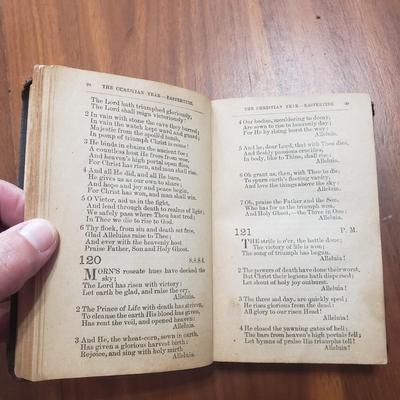 THE CHRISTIAN YEAR—EASTERTIDE.
The Lord hath triumphed gloriously,
The Lord shall reign victoriously!
2 In vain with stone the cave they barred;
In vain the watch kept ward and guard;
Majestic from the spoiled tomb,
In pomp of triumph Christ is come!
3 He binds in chains the ancient foe;
A countless host He frees from woe,
And heaven's high portal open flies,
For Christ has risen, and man shall rise.
4 And all He did, and all He bare,
He gives us as our own to share;
And hope and joy and peace begin,
For Christ has won, and man shall win.
5 O Victor, aid us in the fight,
And lead through death to realms of light;
We safely pass where Thou hast trod;
In Thee we die to rise to God.
6 Thy flock, from sin and death set free,
Glad Alleluias raise to Thee;
And ever with the heavenly host
Praise Father, Son and Holy Ghost.
120 8.8.8.4.
MORN'S roseate hues have decked the
sky;
The Lord has risen with victory:
Let earth be glad, and raise the cry,
Alleluia.
2 The Prince of Life with death has striven,
To cleanse the earth His blood has given,
Has rent the veil, and opened heaven:
Alleluia.
3 And He, the wheat-corn, sown in earth,
Has given a glorious harvest birth:
Rejoice, and sing with holy mirth
Alleluia!
THE CHRISTIAN YEAR—EASTERTIDE.
4 Our bodies, mouldering to decay,
Are sown to rise to heavenly day;
For He by rising burst the way:
Alleluia!
5 And he, dear Lord, that with Thee dies,
And fleshly passions crucifies,
In body, like to Thine, shall rise:
Alleluia!
6 Oh grant us, then, with Thee to die,
To spurn earth's fleeting vanity,
And love the things above the sky:
Alleluia!
7 Oh, praise the Father and the Son,
Who has for us the triumph won,
And Holy Ghost,—the Three in One:
Alleluia!
121 P. M.
THE strife is o'er, the battle done;
The victory of life is won;
The song of triumph has begun.
Alleluia!
2 The powers of death have done their worst,
But Christ their legions hath dispersed;
Let shout of holy joy outburst.
Alleluia!
3 The three sad days are quickly sped;
He rises glorious from the dead:
All glory to our risen Head!
Alleluia!
4 He closed the yawning gates of hell;
The bars from heaven's high portals fell;
Let hymns of praise His triumphs tell!
Alleluia!